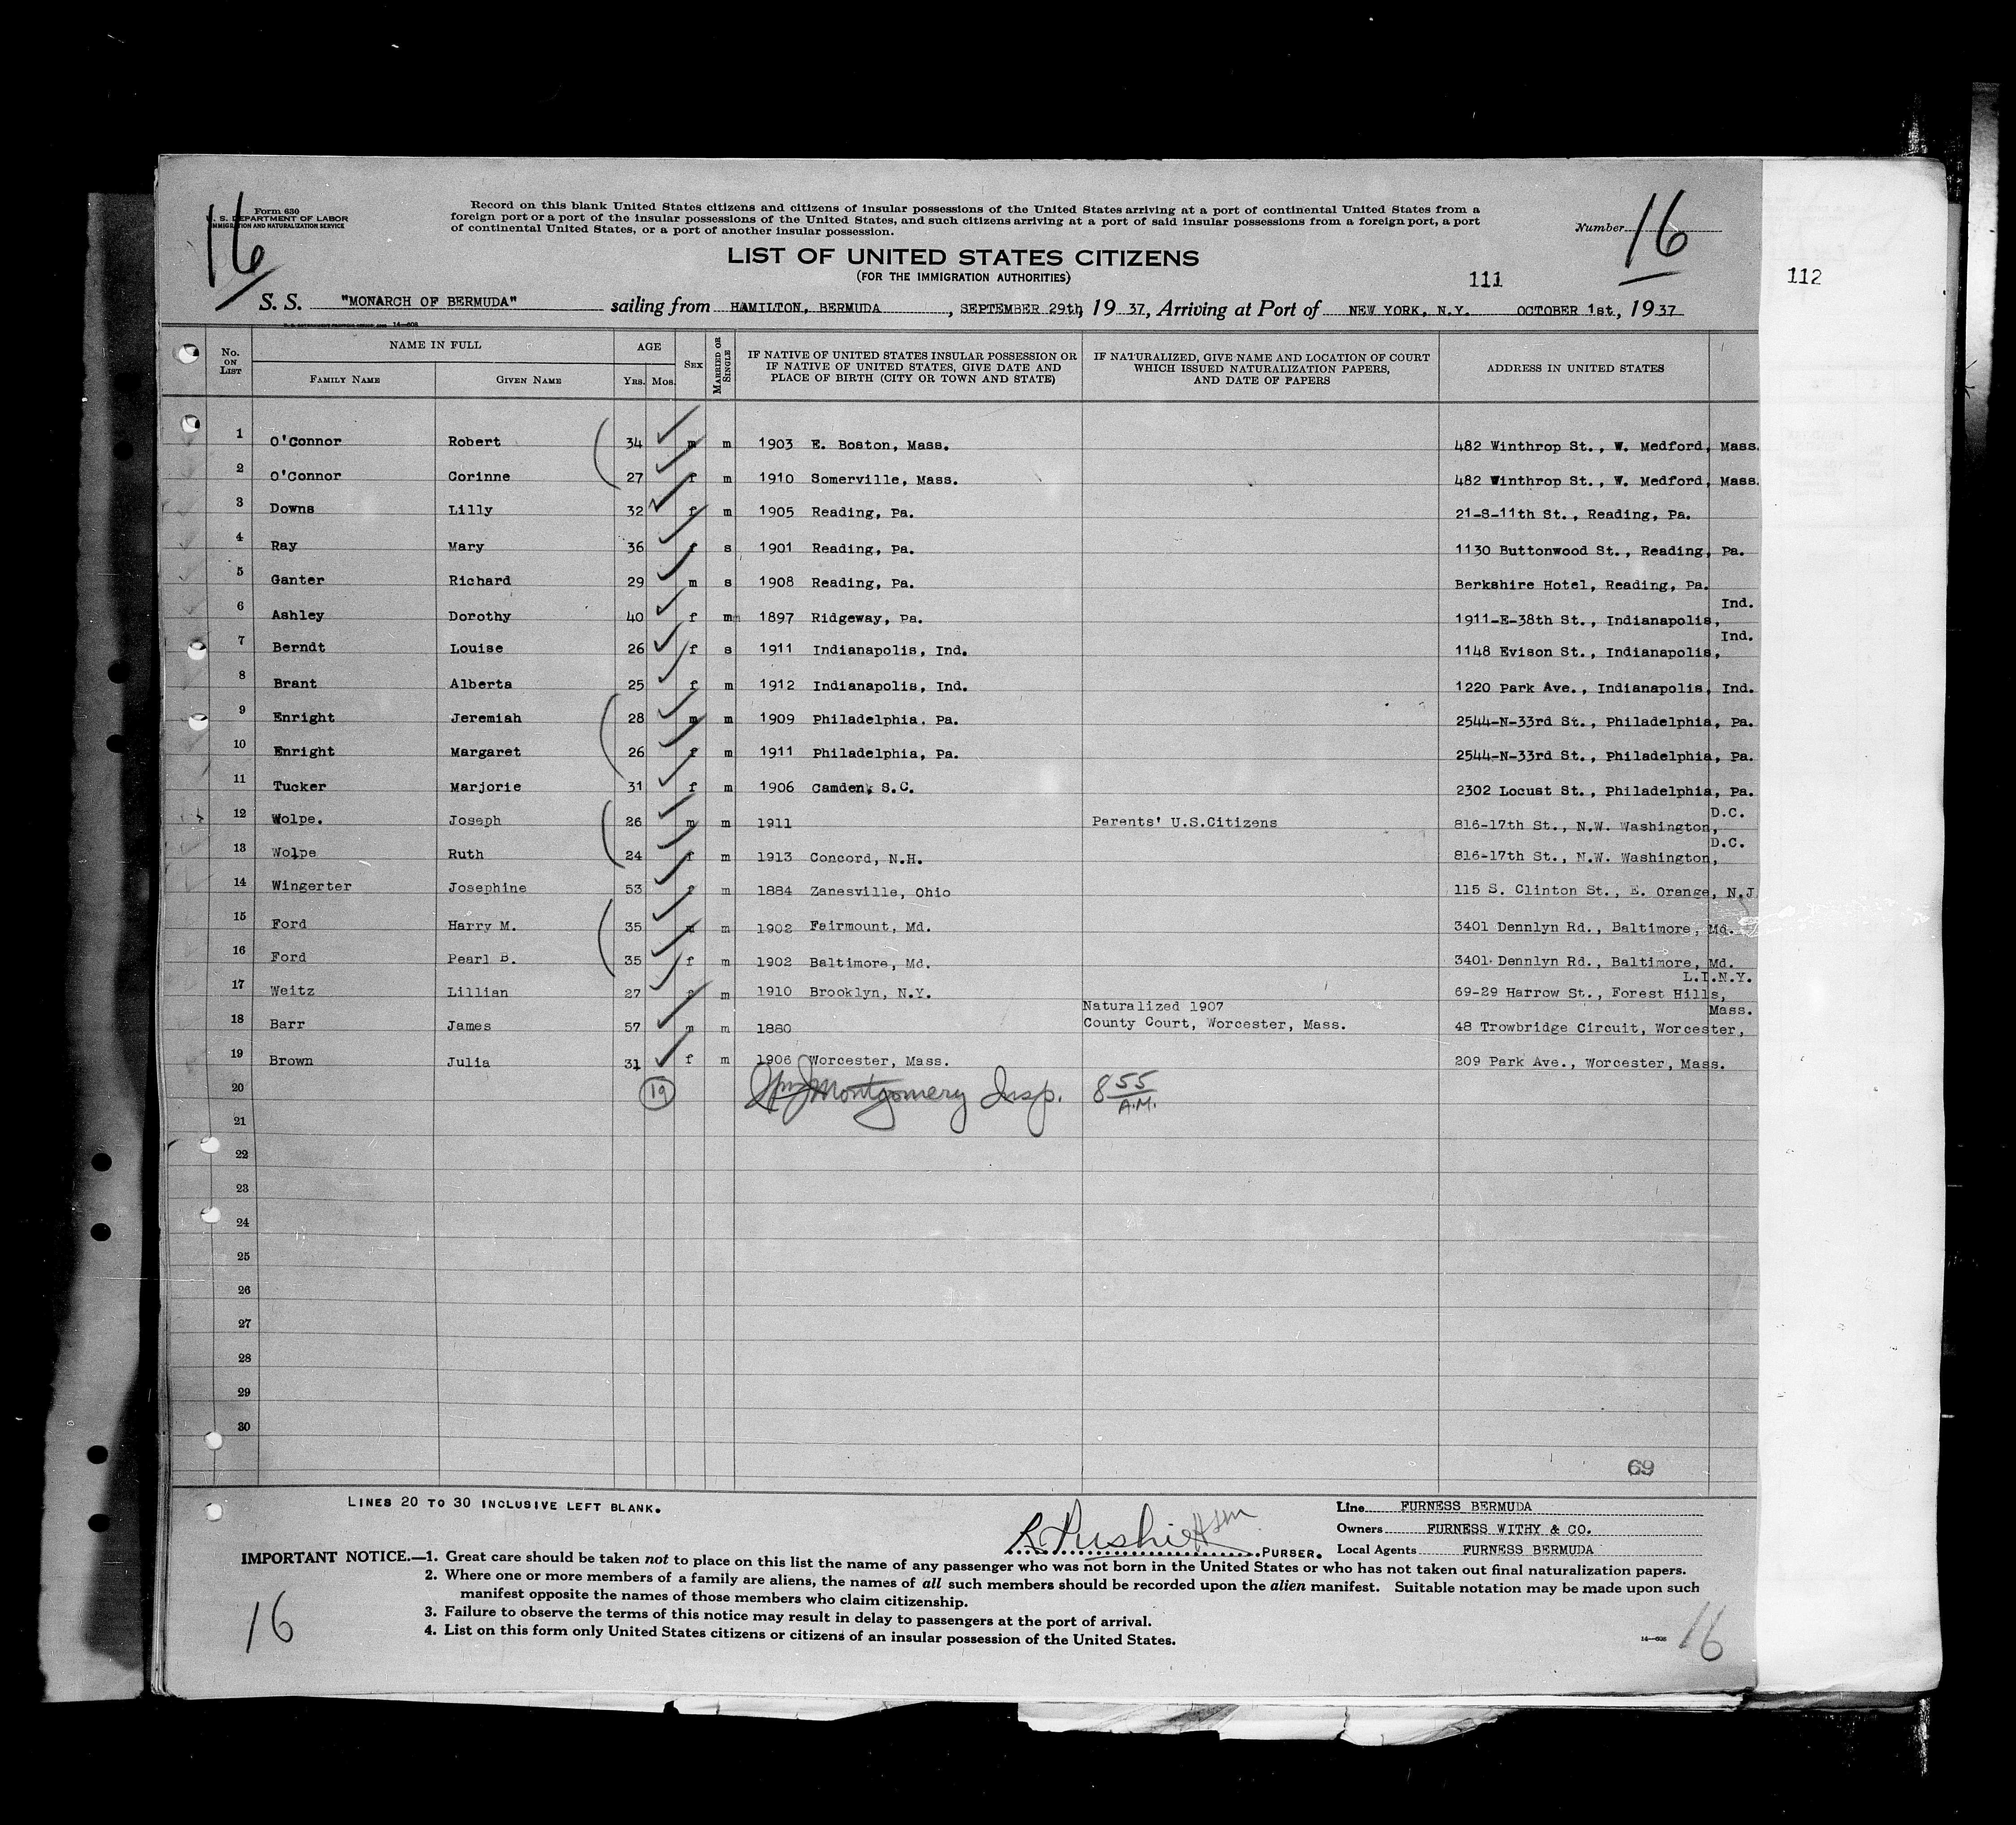 16
Form 630
U. S. DEPARTMENT OF LABOR
IMMIGRATION AND NATURALIZATION SERVICE
Record on this blank United States citizens and citizens of insular possessions of the United States arriving at a port of continental United States from a
foreign port or a port of the insular possessions of the United States, and such citizens arriving at a port of said insular possessions from a foreign port, a port
of continental United States, or a port of another insular possession.
Number 16
LIST OF UNITED STATES CITIZENS
(FOR THE IMMIGRATION AUTHORITIES)
111
112
S. S. "MONARCH OF BERMUDA" sailing from HAMILTON, BERMUDA, SEPTEMBER 29th, 19 37, Arriving at Port of NEW YORK, N.Y. OCTOBER 1st, 19 37
14—608
No. ON LIST
NAME IN FULL
FAMILY NAME
GIVEN NAME
AGE
YRS. MOS.
SEX
MARRIED OR SINGLE
IF NATIVE OF UNITED STATES INSULAR POSSESSION OR
IF NATIVE OF UNITED STATES, GIVE DATE AND
PLACE OF BIRTH (CITY OR TOWN AND STATE)
IF NATURALIZED, GIVE NAME AND LOCATION OF COURT
WHICH ISSUED NATURALIZATION PAPERS,
AND DATE OF PAPERS
ADDRESS IN UNITED STATES
1 O'Connor Robert 34 m m 1903 E. Boston, Mass. 482 Winthrop St., W. Medford, Mass.
2 O'Connor Corinne 27 f m 1910 Somerville, Mass. 482 Winthrop St., W. Medford, Mass.
3 Downs Lilly 32 f m 1905 Reading, Pa. 21-S-11th St., Reading, Pa.
4 Ray Mary 36 f s 1901 Reading, Pa. 1130 Buttonwood St., Reading, Pa.
5 Ganter Richard 29 m s 1908 Reading, Pa. Berkshire Hotel, Reading, Pa.
6 Ashley Dorothy 40 f m 1897 Ridgeway, Pa. 1911-E-38th St., Indianapolis, Ind.
7 Berndt Louise 26 f s 1911 Indianapolis, Ind. 1148 Evison St., Indianapolis, Ind.
8 Brant Alberta 25 f m 1912 Indianapolis, Ind. 1220 Park Ave., Indianapolis, Ind.
9 Enright Jeremiah 28 m m 1909 Philadelphia, Pa. 2544-N-33rd St., Philadelphia, Pa.
10 Enright Margaret 26 f m 1911 Philadelphia, Pa. 2544-N-33rd St., Philadelphia, Pa.
11 Tucker Marjorie 31 f m 1906 Camden, S.C. 2302 Locust St., Philadelphia, Pa.
12 Wolpe. Joseph 26 m m 1911 Parents' U.S.Citizens 816-17th St., N.W. Washington, D.C.
13 Wolpe Ruth 24 f m 1913 Concord, N.H. 816-17th St., N.W. Washington, D.C.
14 Wingerter Josephine 53 f m 1884 Zanesville, Ohio 115 S. Clinton St., E. Orange, N.J
15 Ford Harry M. 35 m m 1902 Fairmount, Md. 3401 Dennlyn Rd., Baltimore, Md.
16 Ford Pearl B. 35 f m 1902 Baltimore, Md. 3401 Dennlyn Rd., Baltimore, Md.
17 Weitz Lillian 27 f m 1910 Brooklyn, N.Y. 69-29 Harrow St., Forest Hills, L.I.N.Y.
Naturalized 1907
18 Barr James 57 m m 1880 County Court, Worcester, Mass. 48 Trowbridge Circuit, Worcester, Mass.
19 Brown Julia 31 f m 1906 Worcester, Mass. 209 Park Ave., Worcester, Mass.
20 19 Wm J Montgomery Insp. 8 55 A.M.
21
22
23
24
25
26
27
28
29
30
69
LINES 20 TO 30 INCLUSIVE LEFT BLANK.
PURSER.
Line FURNESS BERMUDA
Owners FURNESS WITHY & CO.
Local Agents FURNESS BERMUDA
IMPORTANT NOTICE.—1. Great care should be taken not to place on this list the name of any passenger who was not born in the United States or who has not taken out final naturalization papers.
2. Where one or more members of a family are aliens, the names of all such members should be recorded upon the alien manifest. Suitable notation may be made upon such
manifest opposite the names of those members who claim citizenship.
3. Failure to observe the terms of this notice may result in delay to passengers at the port of arrival.
4. List on this form only United States citizens or citizens of an insular possession of the United States.
16
14—608
16